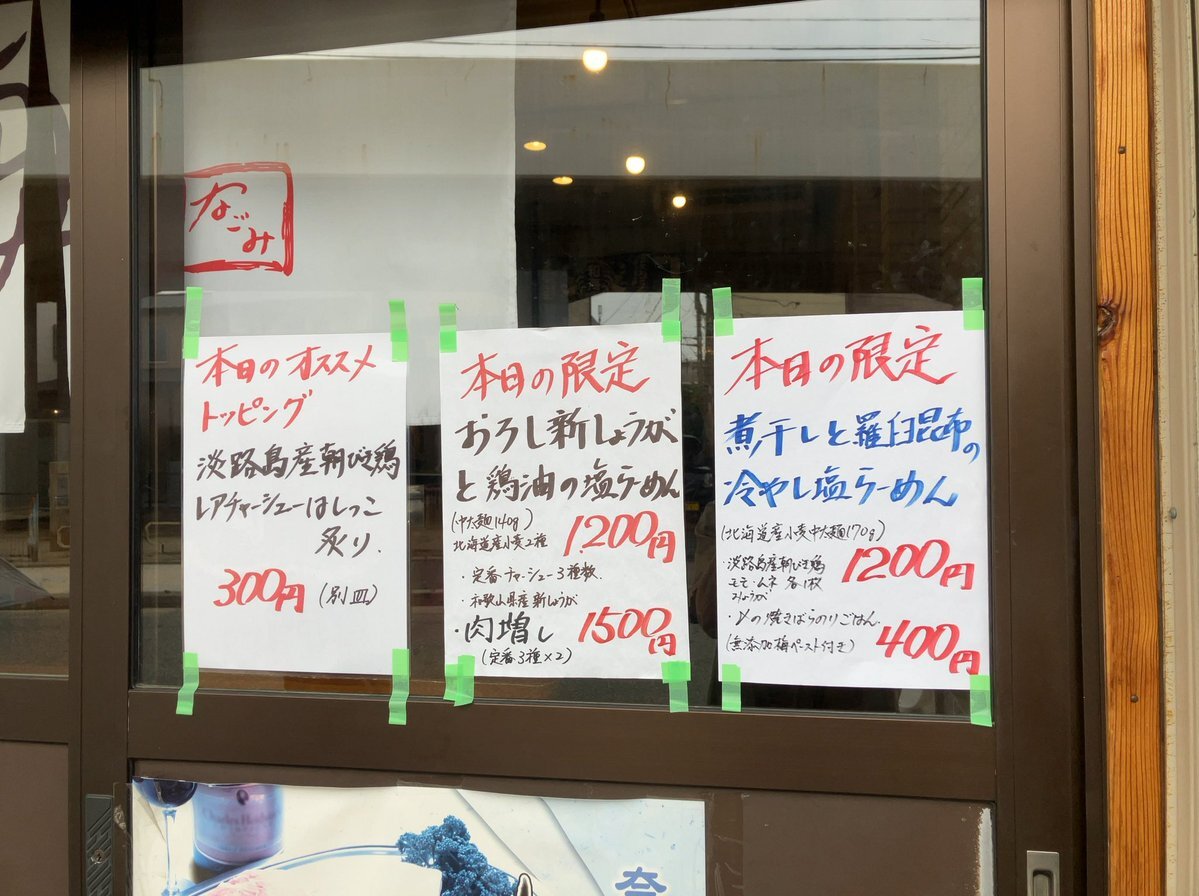 なごみ
本日のオススメ
トッピング
淡路島産朝びき鶏
レアチャーシューはしっこ
炙り.
300円(別皿)
本日の限定
おろし新しょうが
と鶏油の塩らーめん
(中太麺140g)
北海道産小麦2種
1200円
・定番チャーシュー3種数.
・和歌山県産新しょうが
・肉増し 1500円
(定番3種×2)
本日の限定
煮干しと羅臼昆布の
冷やし塩らーめん
(北海道産小麦中太麺170g)
・淡路島産朝びき鶏
モモ・ムネ各1枚
みょうが
1200円
・〆の焼きばらのりごはん.
(無添加梅ペースト付き)
400円